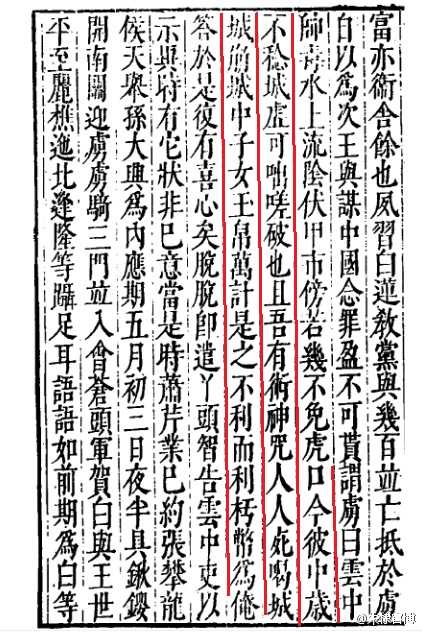 富亦衛舍餘也夙習白蓮教黨與幾百並亡抵於虜
自以為次王與謀中國念罪盈不可貰謂虜曰雲中
師毒水上流陰伏甲市傍若幾不免虎口今彼中歲
不稔城虛可咄嗟破也且吾有術神咒人人死喝城
城崩城中子女王帛萬計是之不利而利朽幣為俺
答於是復有喜心矣脫脫即遣丫頭智告雲中吏以
示異時有它狀非已意當是時蕭芹業已約張攀龍
侯天舉孫大興為內應期五月初三日夜半具鍬钁
開南關迎虜虜騎三門並入會蒼頭軍賀白與王世
平至麗樵迤北逢隆等躡足耳語語如前期為白等